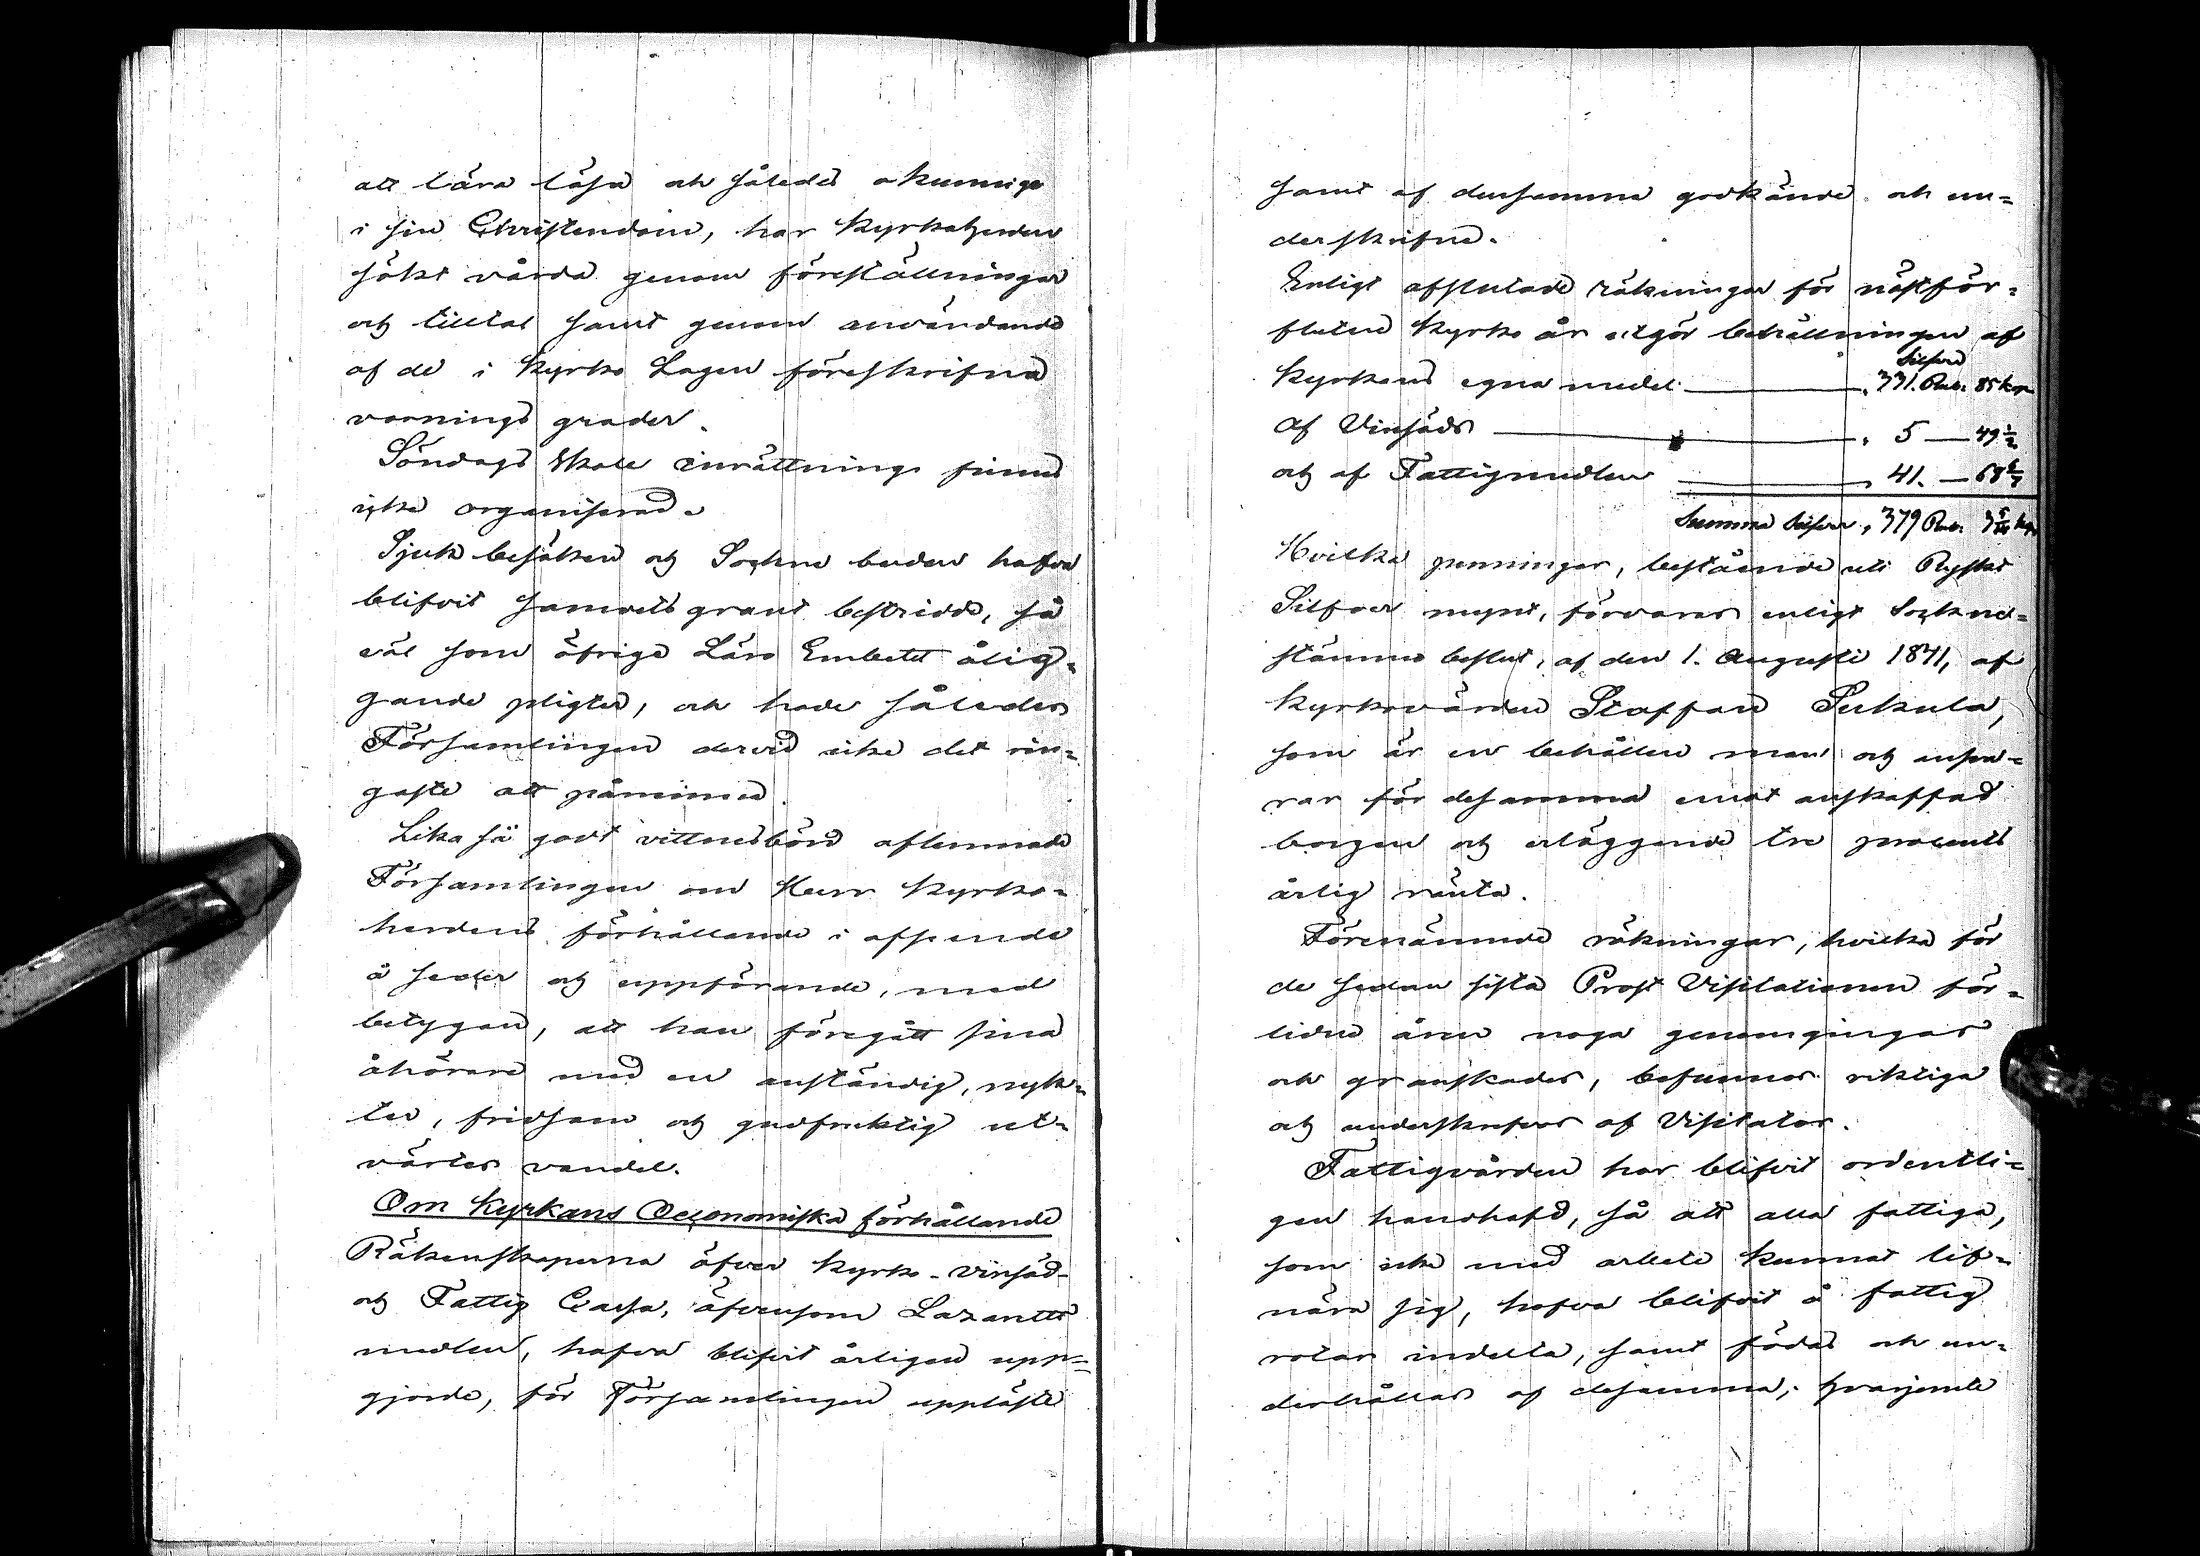 att lära läsa och således okunniga
i sin Christendom, har Kyrkoherden
sökt vårda genom föreställningar
och tilltal samt genom användande
af de i Kyrko Lagen föreskrifna
varnings grader.
Söndags Skole inrättning finnes
icke organiserad.
Sjuk besöken och Sockne buden hafva
blifvit samvetsgrant bestridde, så
väl som öfrige Läro Embetet ålig-
gande pligter, och hade således
Församlingen dervid icke det rin-
gaste att påminna.
Lika så godt vittnesbörd aflemnade
Församlingen om Herr Kyrko-
herdens förhållande i afseende
å seder och uppförande, med
betygan, att han föregått sina
åhörare med en anständig, nyk-
ter, fridsam och gudfruktig ut-
värtes vandel.
Om Kyrkans Oeconomiska förhållande
Räkenskaperna öfver Kyrko- vinsäd-
och Fattig Cassa, äfvensom Lazaretts
medlen, hafva blifvit årligen upp-
gjorde, för Församlingen uppläste
samt af densamma godkände och un-
derskrifne.
Enligt afslutade räkningar för nästför-
flutne Kyrko år utgör behållningen af
Silfver
Kyrkans egna medel 331. Rub. 85 kop
Af Vinsäds 5 — 49 1/2
och af Fattigmedlen 41. — 68
Summa Silfver, 379 Rub. 3 kop
Hvilka penningar, bestående uti Ryskt
Silfver mynt, förvaras enligt Sockne-
stämmo beslut, af den 1. Augusti 1841, af
Kyrkovärden Staffan Sukula,
som är en behållen man och ansva-
rar för desamma emot anskaffad
borgen och erläggande tre procents
årlig ränta.
Förenämnde räkningar, hvilka för
de sedan sista Prost Visitationen för-
lidne åren noga genomgingos
och granskades, befunnos riktiga
och underskrefvos af Visitator.
Fattigvården har blifvit ordentli-
gen handhafd, så att alla fattiga,
som icke med arbete kunnat lif-
nära sig, hafva blifvit å fattig
rotar indelta, samt födas och un-
derhållas af desamma; hvarjemte